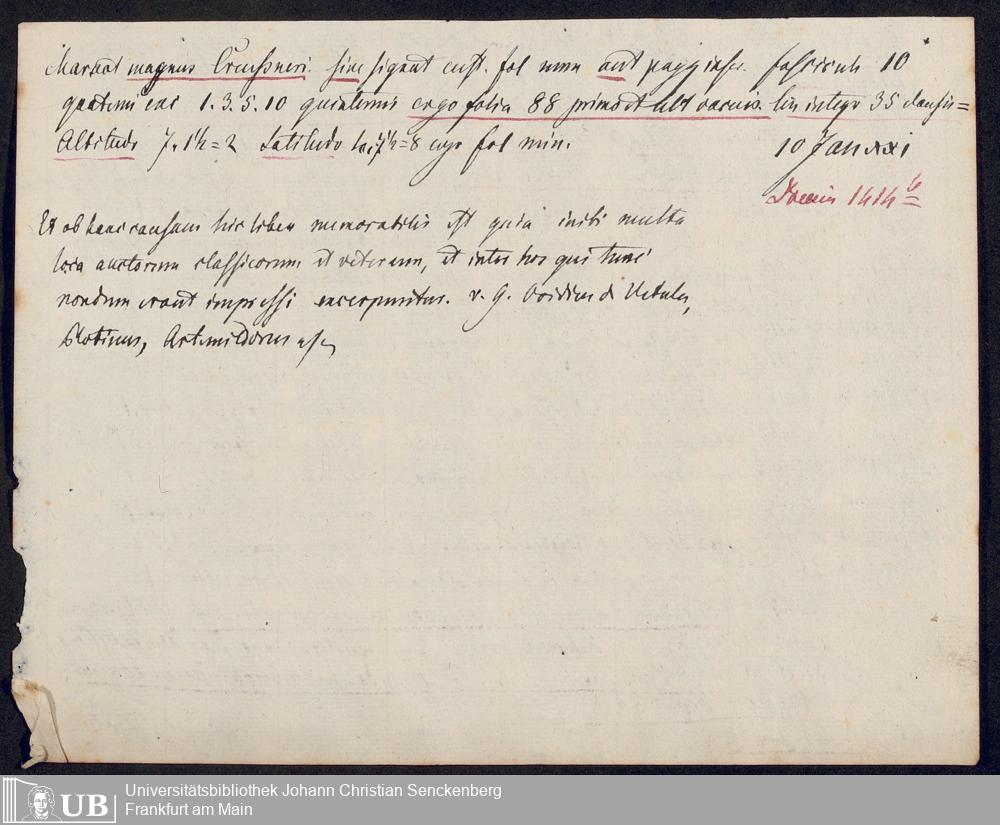 magnus Creussneri. sine signat cust. fol num aut pagg inser. fasciculi 10
quaterni eae 1. 3. 5. 10 quinterni ergo folia 88 primo et ult vacuis. lin integr 35
Altitudo 7. 1½ = 2 Latitudo = 8 ergo fol min.
10 Jan xxi
1414
Et ob hanc causam hic liber memorabilis est quia inibi multa
loca auctorum classicorum et veterum, et inter hos qui tunc
nondum erant impressi excerpuntur. v. g. Ovidius de Vetula,
Plotinus, Artemidorus
UB
Universitätsbibliothek Johann Christian Senckenberg
Frankfurt am Main